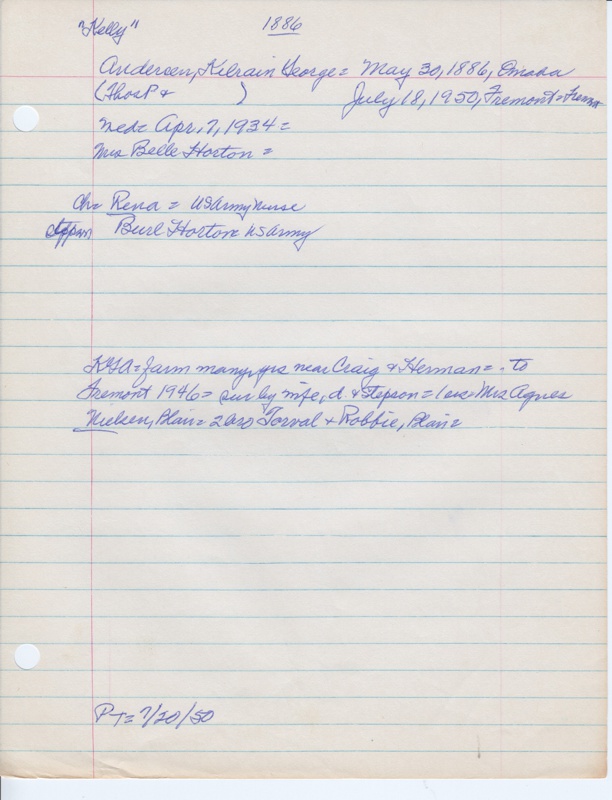 "Kelly" 1886
Andersen, Kilrain George = May 30, 1886, Omaha
(Thos P & ) July 18, 1950, Fremont = Fremont
Wed = Apr, 7, 1934 =
Mrs Belle Horton =
Ch = Rena = US Army Nurse
stepson Burl Horton = US Army
KGA = farm many yrs near Craig & Herman = . to
Fremont 1946 = sur by wife, d. & stepson = 1 sis = Mrs Agnes
Nielsen, Blair = 2 bro Torval & Robbie, Blair =
PT = 7/20/50